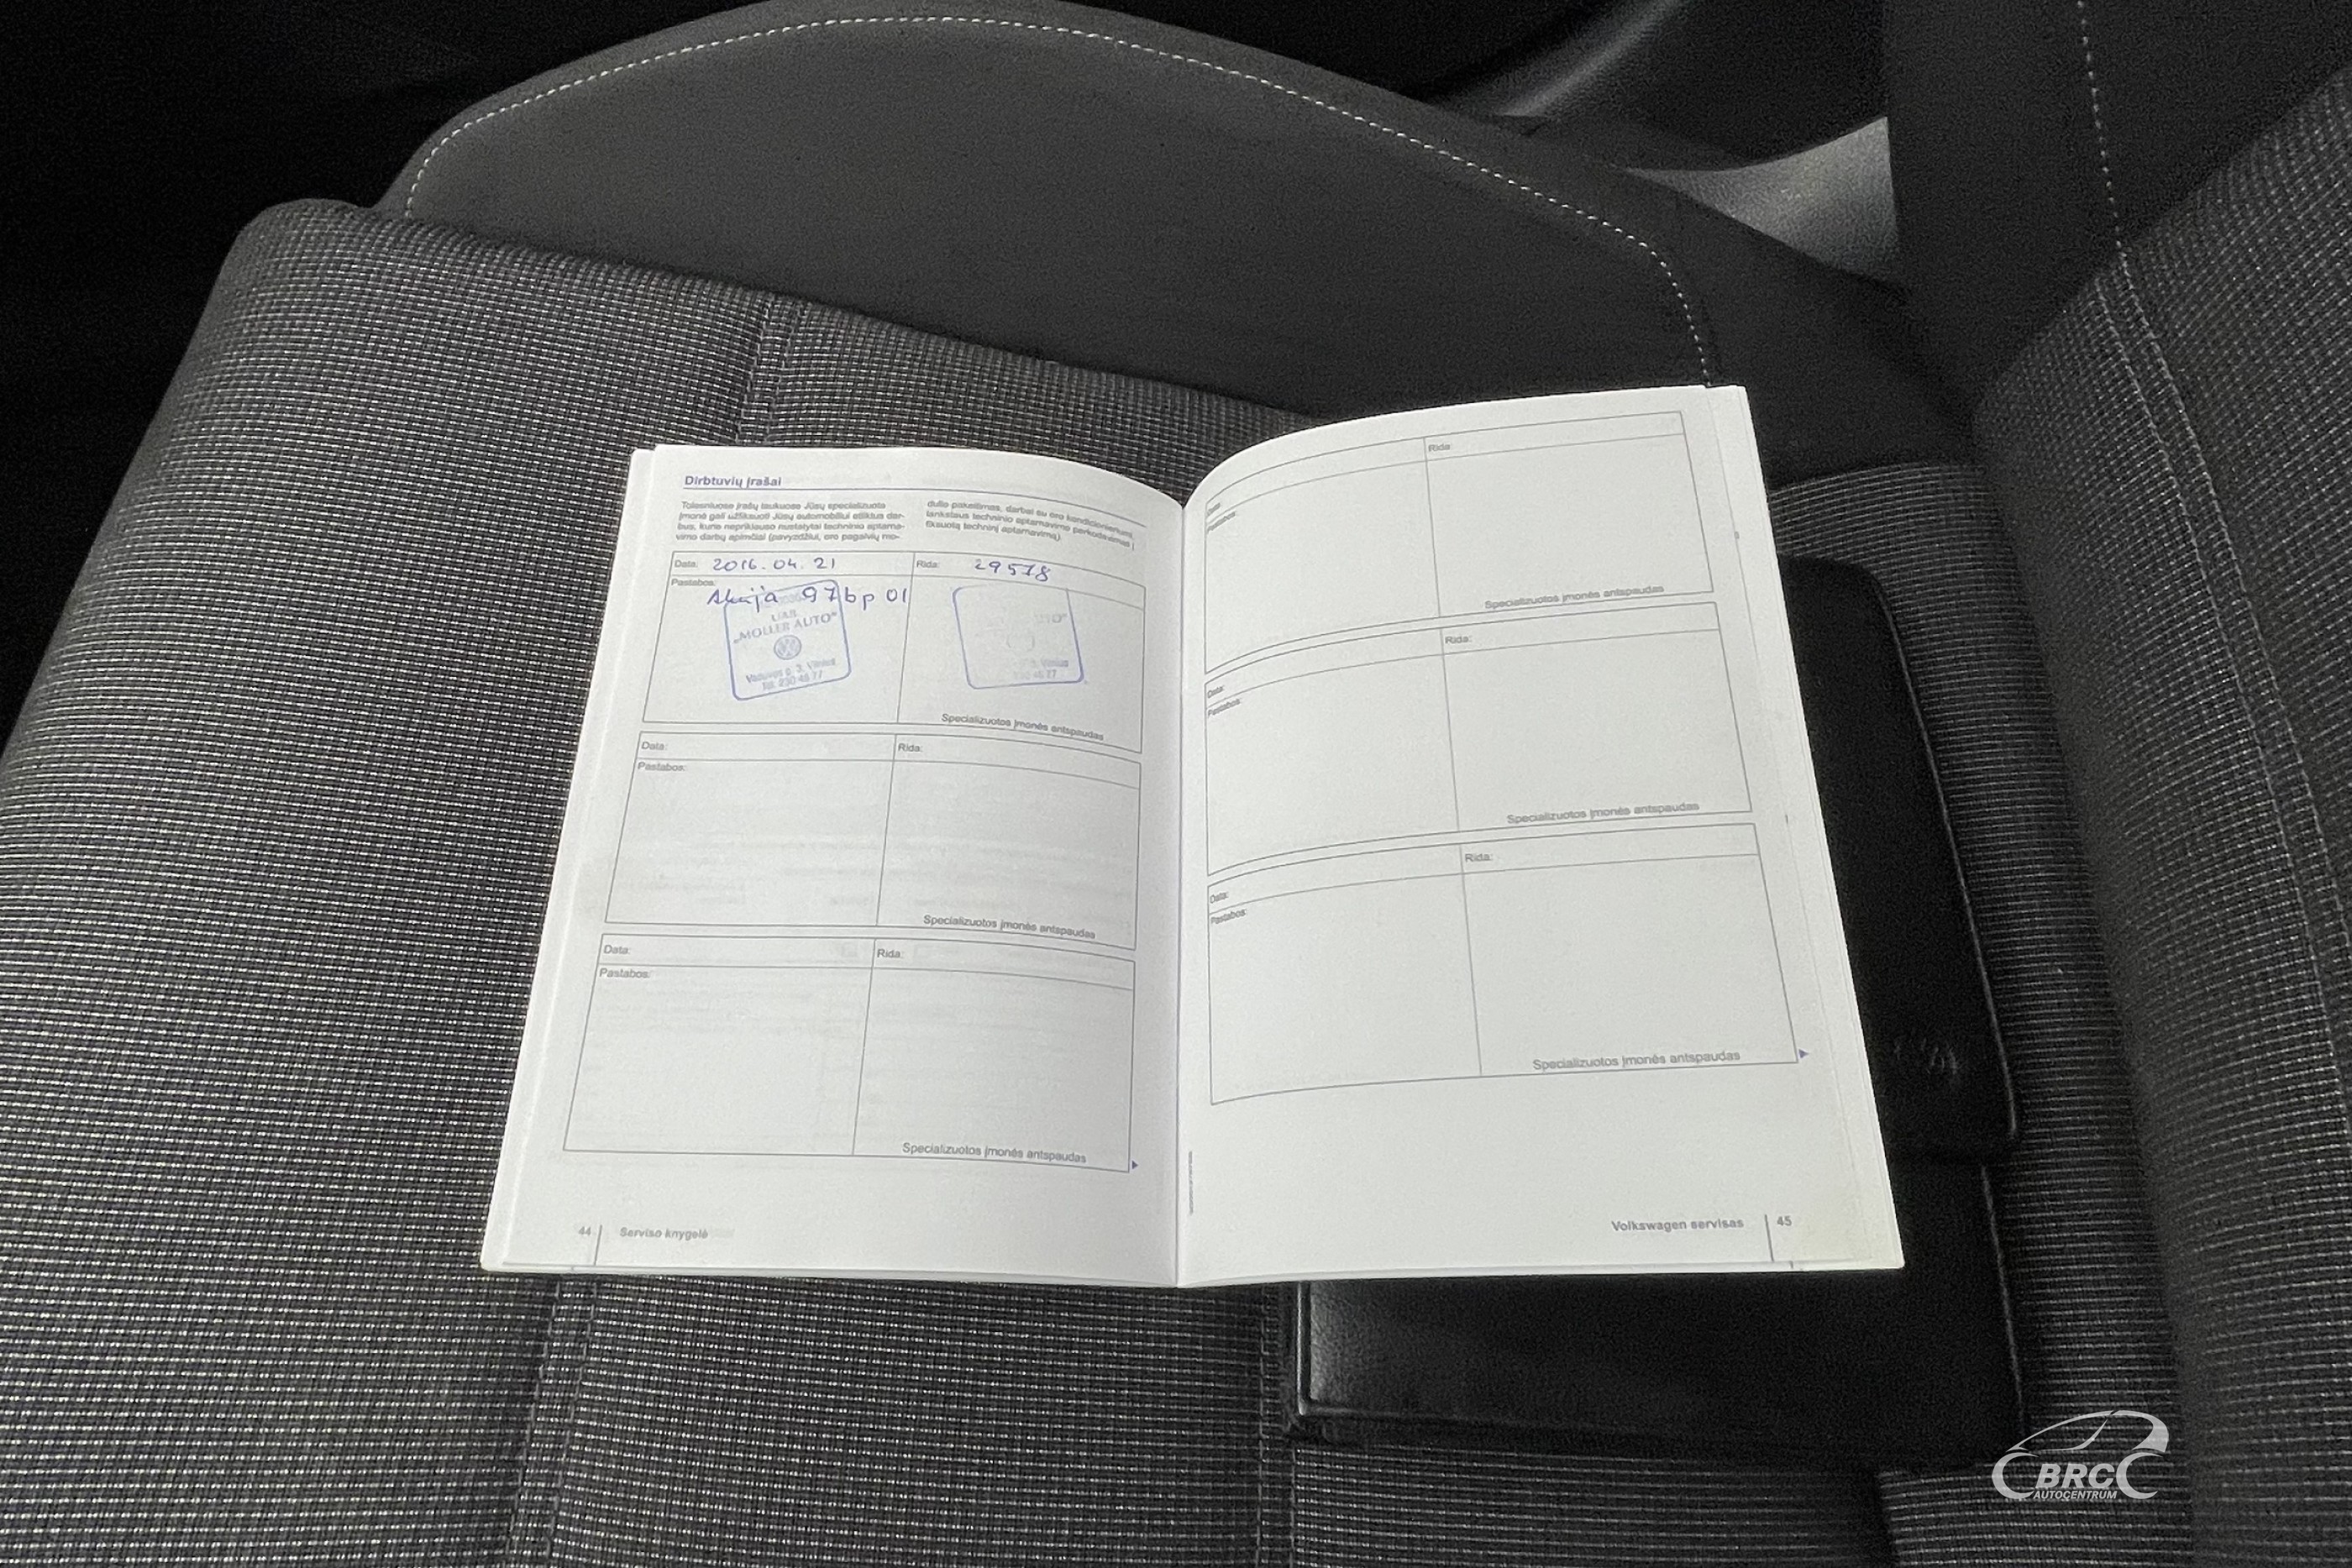 Dirbtuvių įrašai
Tolesniuose įrašų laukuose Jūsų specializuota
įmonė gali užfiksuoti Jūsų automobiliui atliktus dar-
bus, kurie nepriklauso nustatytai techninio aptarna-
vimo darbų apimčiai (pavyzdžiui, oro pagalvių mo-
dulio pakeitimas, darbai su oro kondicionieriumi,
lankstaus techninio aptarnavimo perkodavimas į
fiksuotą techninį aptarnavimą).
Data: 2016.04.21 Rida: 29578
Pastabos: Akcija 97bp 01
UAB
„MOLLER AUTO“
Tel. 230 45 77
Vilnius
Specializuotos įmonės antspaudas
Data: Rida:
Pastabos:
Specializuotos įmonės antspaudas
Data: Rida:
Pastabos:
Specializuotos įmonės antspaudas
44 Serviso knygelė
Data: Rida:
Pastabos:
Specializuotos įmonės antspaudas
Data: Rida:
Pastabos:
Specializuotos įmonės antspaudas
Data: Rida:
Pastabos:
Specializuotos įmonės antspaudas
Volkswagen servisas 45
BRC
AUTOCENTRUM